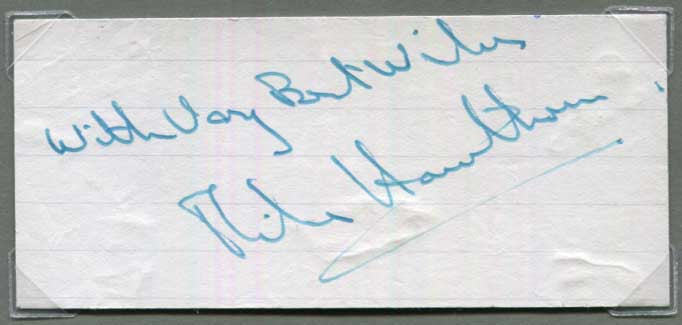 With Very Best Wishes
Mike Hawthorn